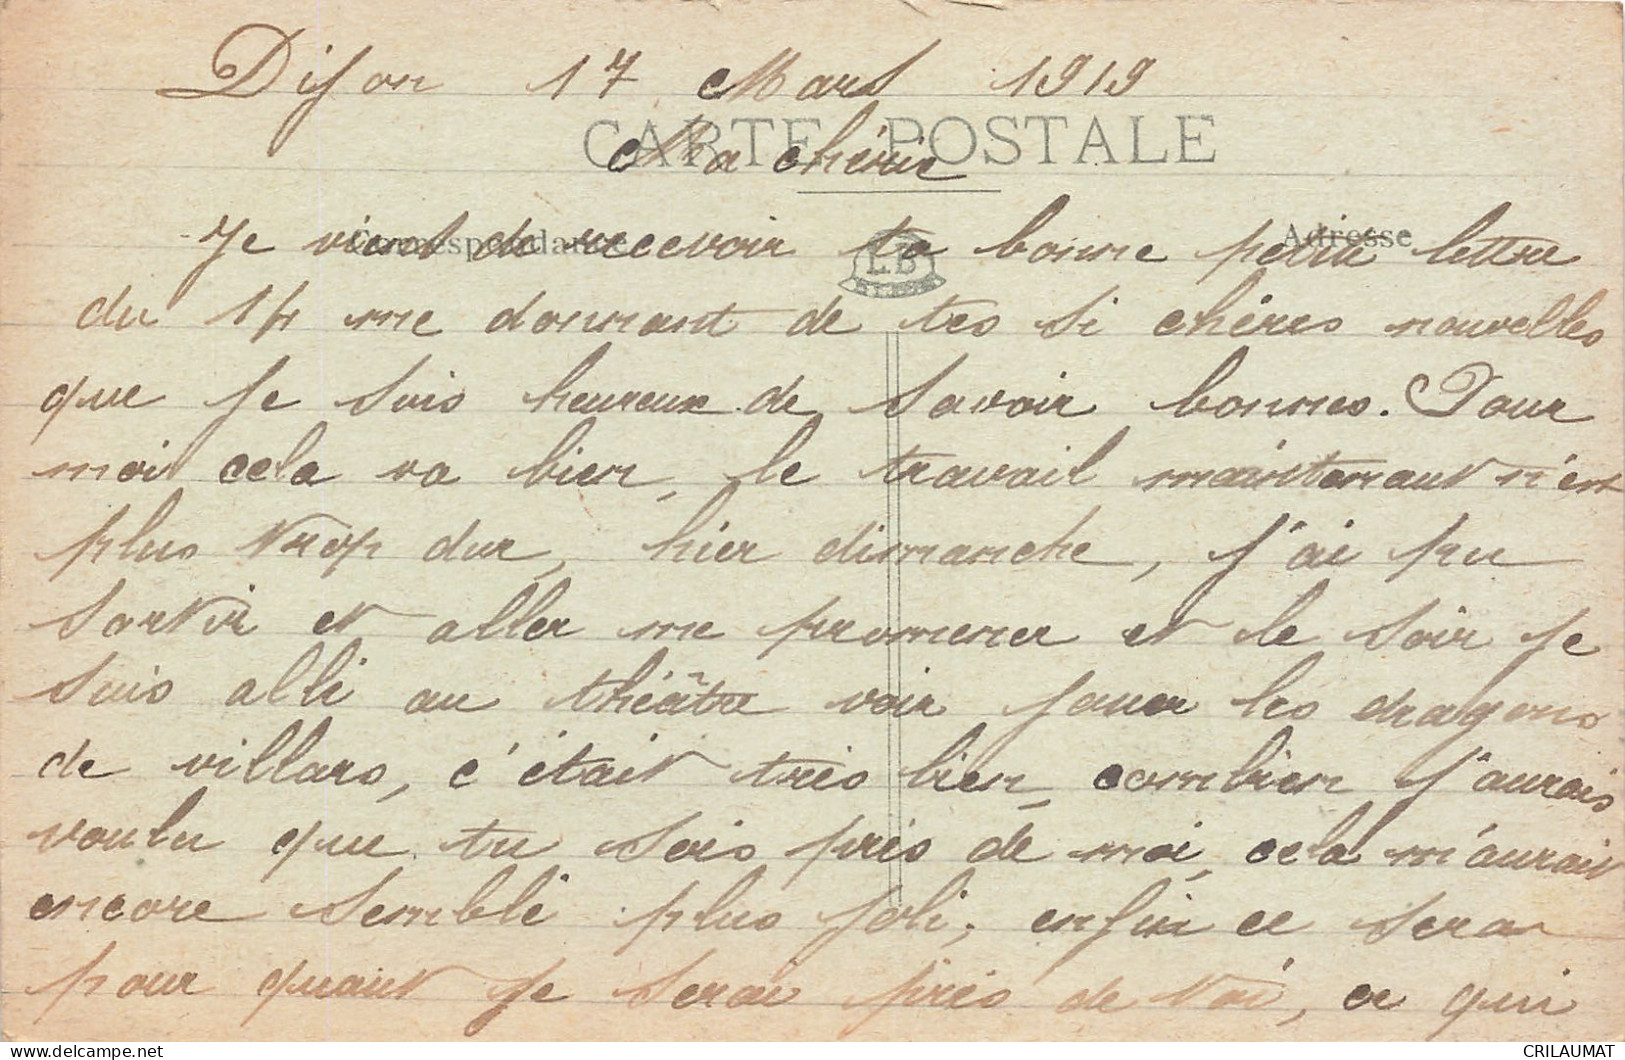 Dijon 17 Mars 1919
CARTE POSTALE
Ma chérie
Correspondance
Adresse
LB
Je vient de recevoir ta bonne petite lettre
du 14 me donnant de tes si chères nouvelles
que je suis heureux de savoir bonnes. Pour
moi cela va bien, le travail maintenant n'est
plus trop dur, hier dimanche, j'ai pu
sortir et aller me promener et le soir je
suis allé au théâtre voir jouer les dragons
de villars, c'était très bien, combien j'aurais
voulu que tu sois près de moi, cela m'aurait
encore semblé plus joli, enfin ce sera
pour quant je serai près de toi, ce qui
CRILAUMAT